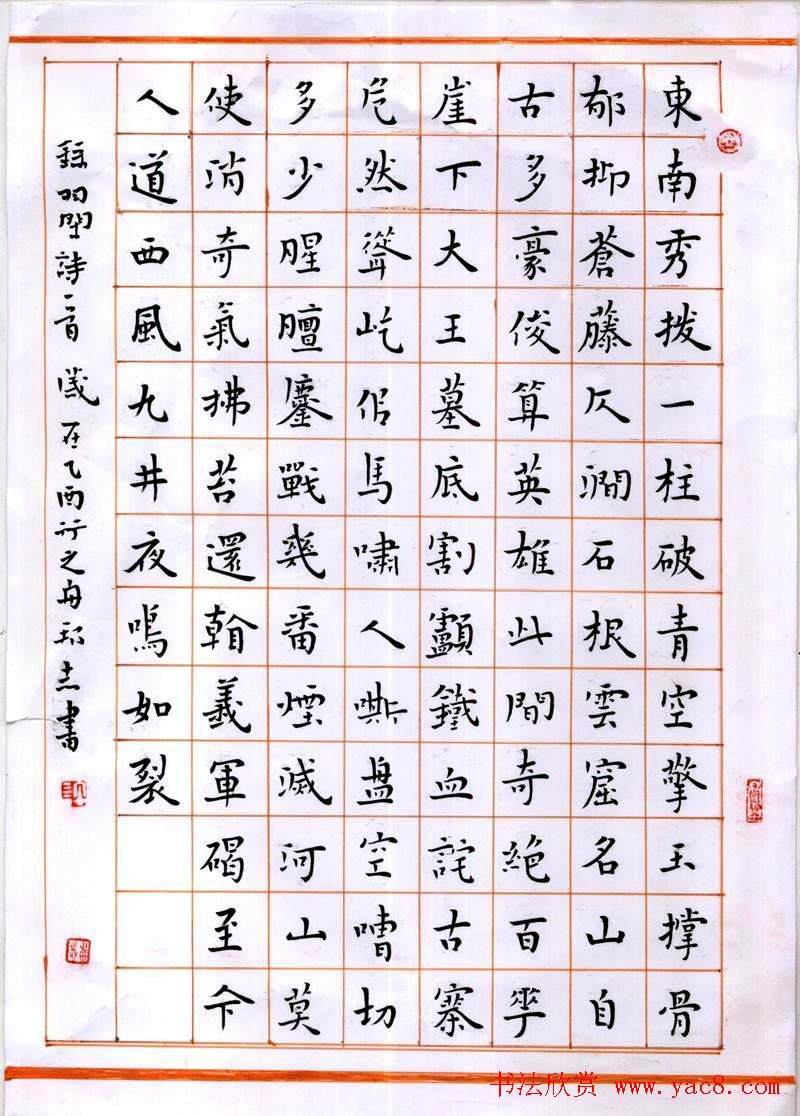 東南秀拔一柱破青空擎玉撐骨
郁抑蒼藤仄澗石根雲窟名山自
古多豪俊算英雄此間奇絕百
崖下大王墓底割鐵血詫古寨
危然聳屹馬嘯人嘶盘空嘈切
多少腥膻鏖戰幾番煙滅河山莫
使消奇氣拂苔還翰義軍碣至今
人道西風九井夜鳴如裂
詩一首 歲在乙酉行之舟志書
书法欣赏 www.yac8.com